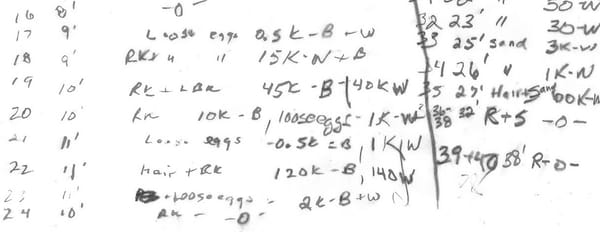 16 8' -0-
17 9' Loose eggs 0.5K-B+W
18 9' RK+ " " 15K-N+B
19 10' RK + LBK 45K-B 40KW
20 10' RK 10K-B, loose eggs-1K-W
21 11' Loose eggs -0.5K-B, 1KW
22 11' Hair + RK 120K-B, 140W
23 11' loose eggs - 2K-B+W
24 10' RK - -0-
50-W
32 23' " 30-W
33 25' sand 3K-W
34 26' " 1K-N
35 27' Hair+Sand 60K-W
36-38 32' R+S -0-
39+40 38' R-0-